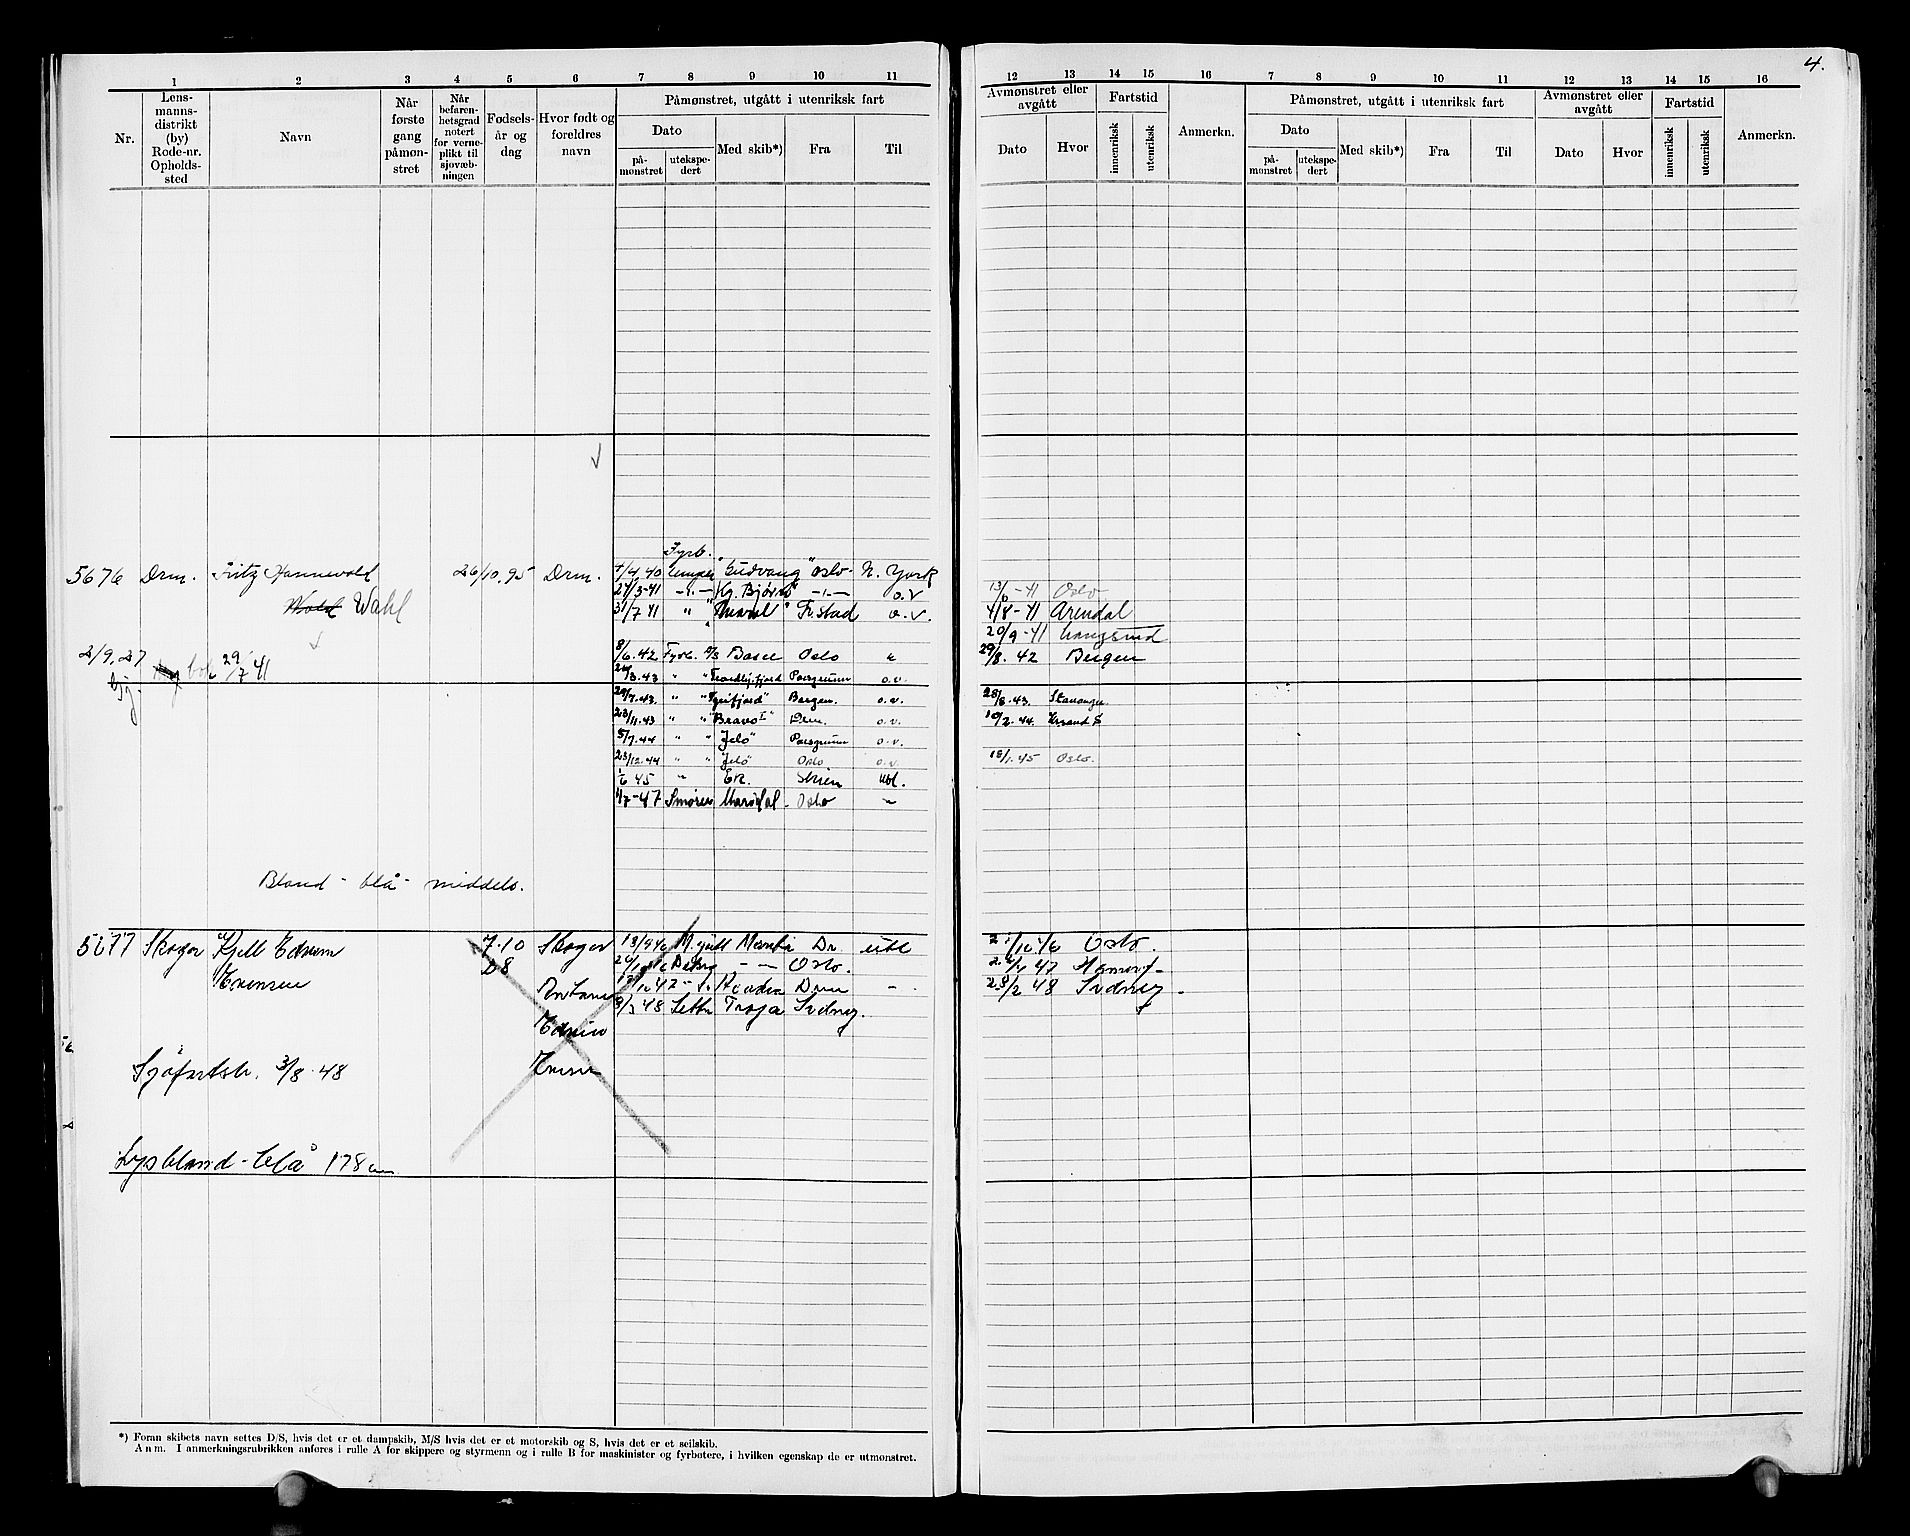 4.
1 2 3 4 5 6 7 8 9 10 11
12 13 14 15 16 7 8 9 10 11 12 13 14 15 16
Nr.
Lens-
manns-
distrikt
(by)
Rode-nr.
Opholds-
sted
Navn
Når
første
gang
påmøn-
stret
Når
befaren-
hetsgrad
notert
for verne-
plikt til
sjøvæb-
ningen
Fødsels-
år og
dag
Hvor født og
foreldres
navn
Påmønstret, utgått i utenriksk fart
Dato
på-
mønstret
utekspe-
dert
Med skib*)
Fra
Til
Avmønstret eller
avgått
Dato
Hvor
Fartstid
innenriksk
utenriksk
Anmerkn.
Påmønstret, utgått i utenriksk fart
Dato
på-
mønstret
utekspe-
dert
Med skib*)
Fra
Til
Avmønstret eller
avgått
Dato
Hvor
Fartstid
innenriksk
utenriksk
Anmerkn.
Fyrb.
5676 Drm. Fritz Hannevold 26/10.95 Drm. 4/4.40 Lemper "Gudvang" Oslo - N. York
Wold Wahl
24/3-41 -"- Kg. Bjørn -"- o.v 13/6-41 Oslo
31/7 41 " Fr.stad o.v. 4/8-41 Arendal
20/9-41 Langesund
2/9.27 bok 29/7 41
8/6.42 Fyrb. Basel Oslo " 29/8.42 Bergen
24/3.43 " " Porsgrunn o.v.
29/7.43 " "Tyrifjord" Bergen. o.v. 28/8.43. Stavanger
23/11.43 " "Bravo I" Drm. o.v. 10/2.44. Krsand S
5/7.44 " "Jelø" Porsgrunn o.v.
23/12.44 " "Jelø" Oslo o.v. 18/1.45 Oslo.
1/6 45 " Ek. Skien utl.
1/7-47 Smører Marsdal - Oslo "
Blond - blå - middels.
5677 Skoger Kjell Edvin 7.10 Skoger 13/9 46 M.gutt Dr. utl 2/10 46 Oslo.
Evensen 28 26/10 46 Deksg - - Oslo. 47
13/10 47 -"- Drm - 28/2 48 Sidney -
8/3 48 Lettm Troja Sidney.
Edvin
Evensen
Sjøfartsb. 3/8.48
Lysblond - blå 178 cm
*) Foran skibets navn settes D/S, hvis det er et dampskib, M/S hvis det er et motorskib og S, hvis det er et seilskib.
Anm. I anmerkningsrubrikken anføres i rulle A for skippere og styrmenn og i rulle B for maskinister og fyrbøtere, i hvilken egenskap de er utmønstret.